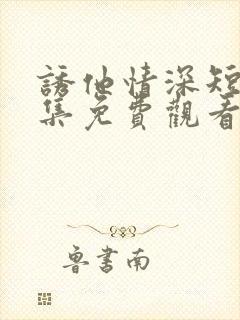 誘他情深短
集免費觀看
魯書南